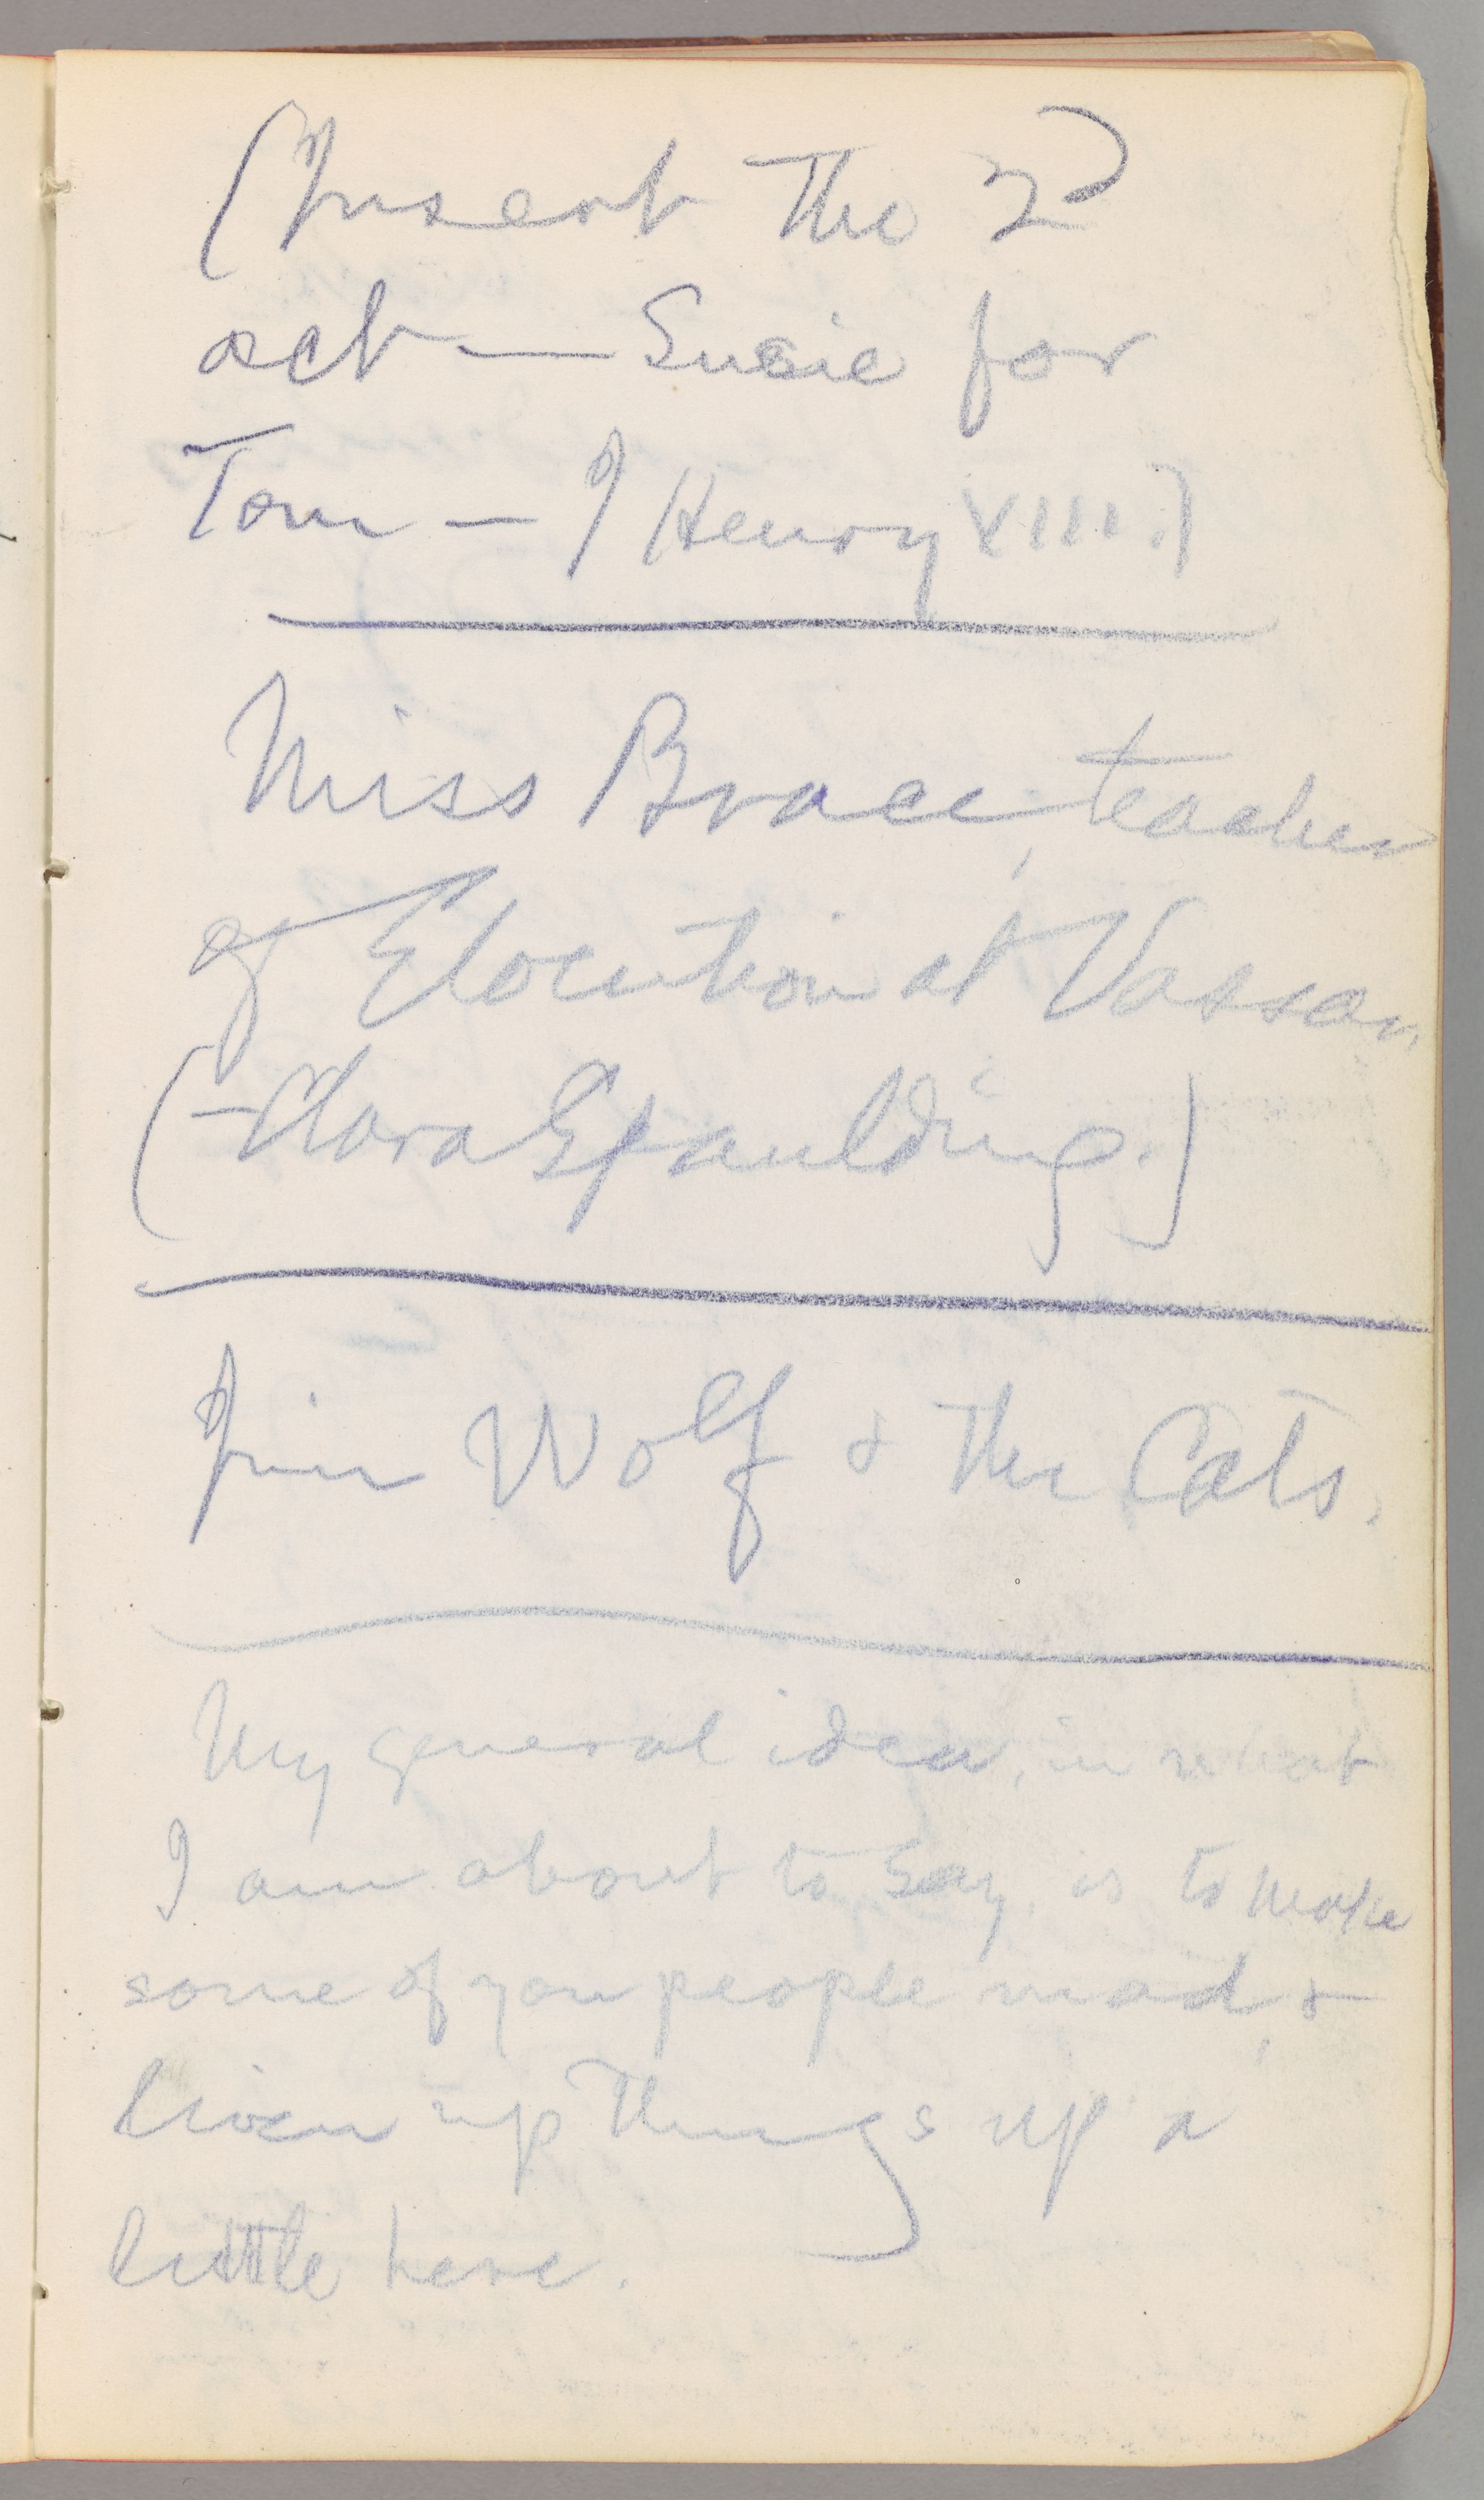 (Insert the 2d
act — Susie for
Tom — I Henry VIII.)
Miss Brace, teacher
of Elocution at Vassar,
(—Clara Spaulding.)
Jim Wolf & the Cats.
My general idea, in what
I am about to say, is to make
some of you people mad, &
liven up things up a
little here.